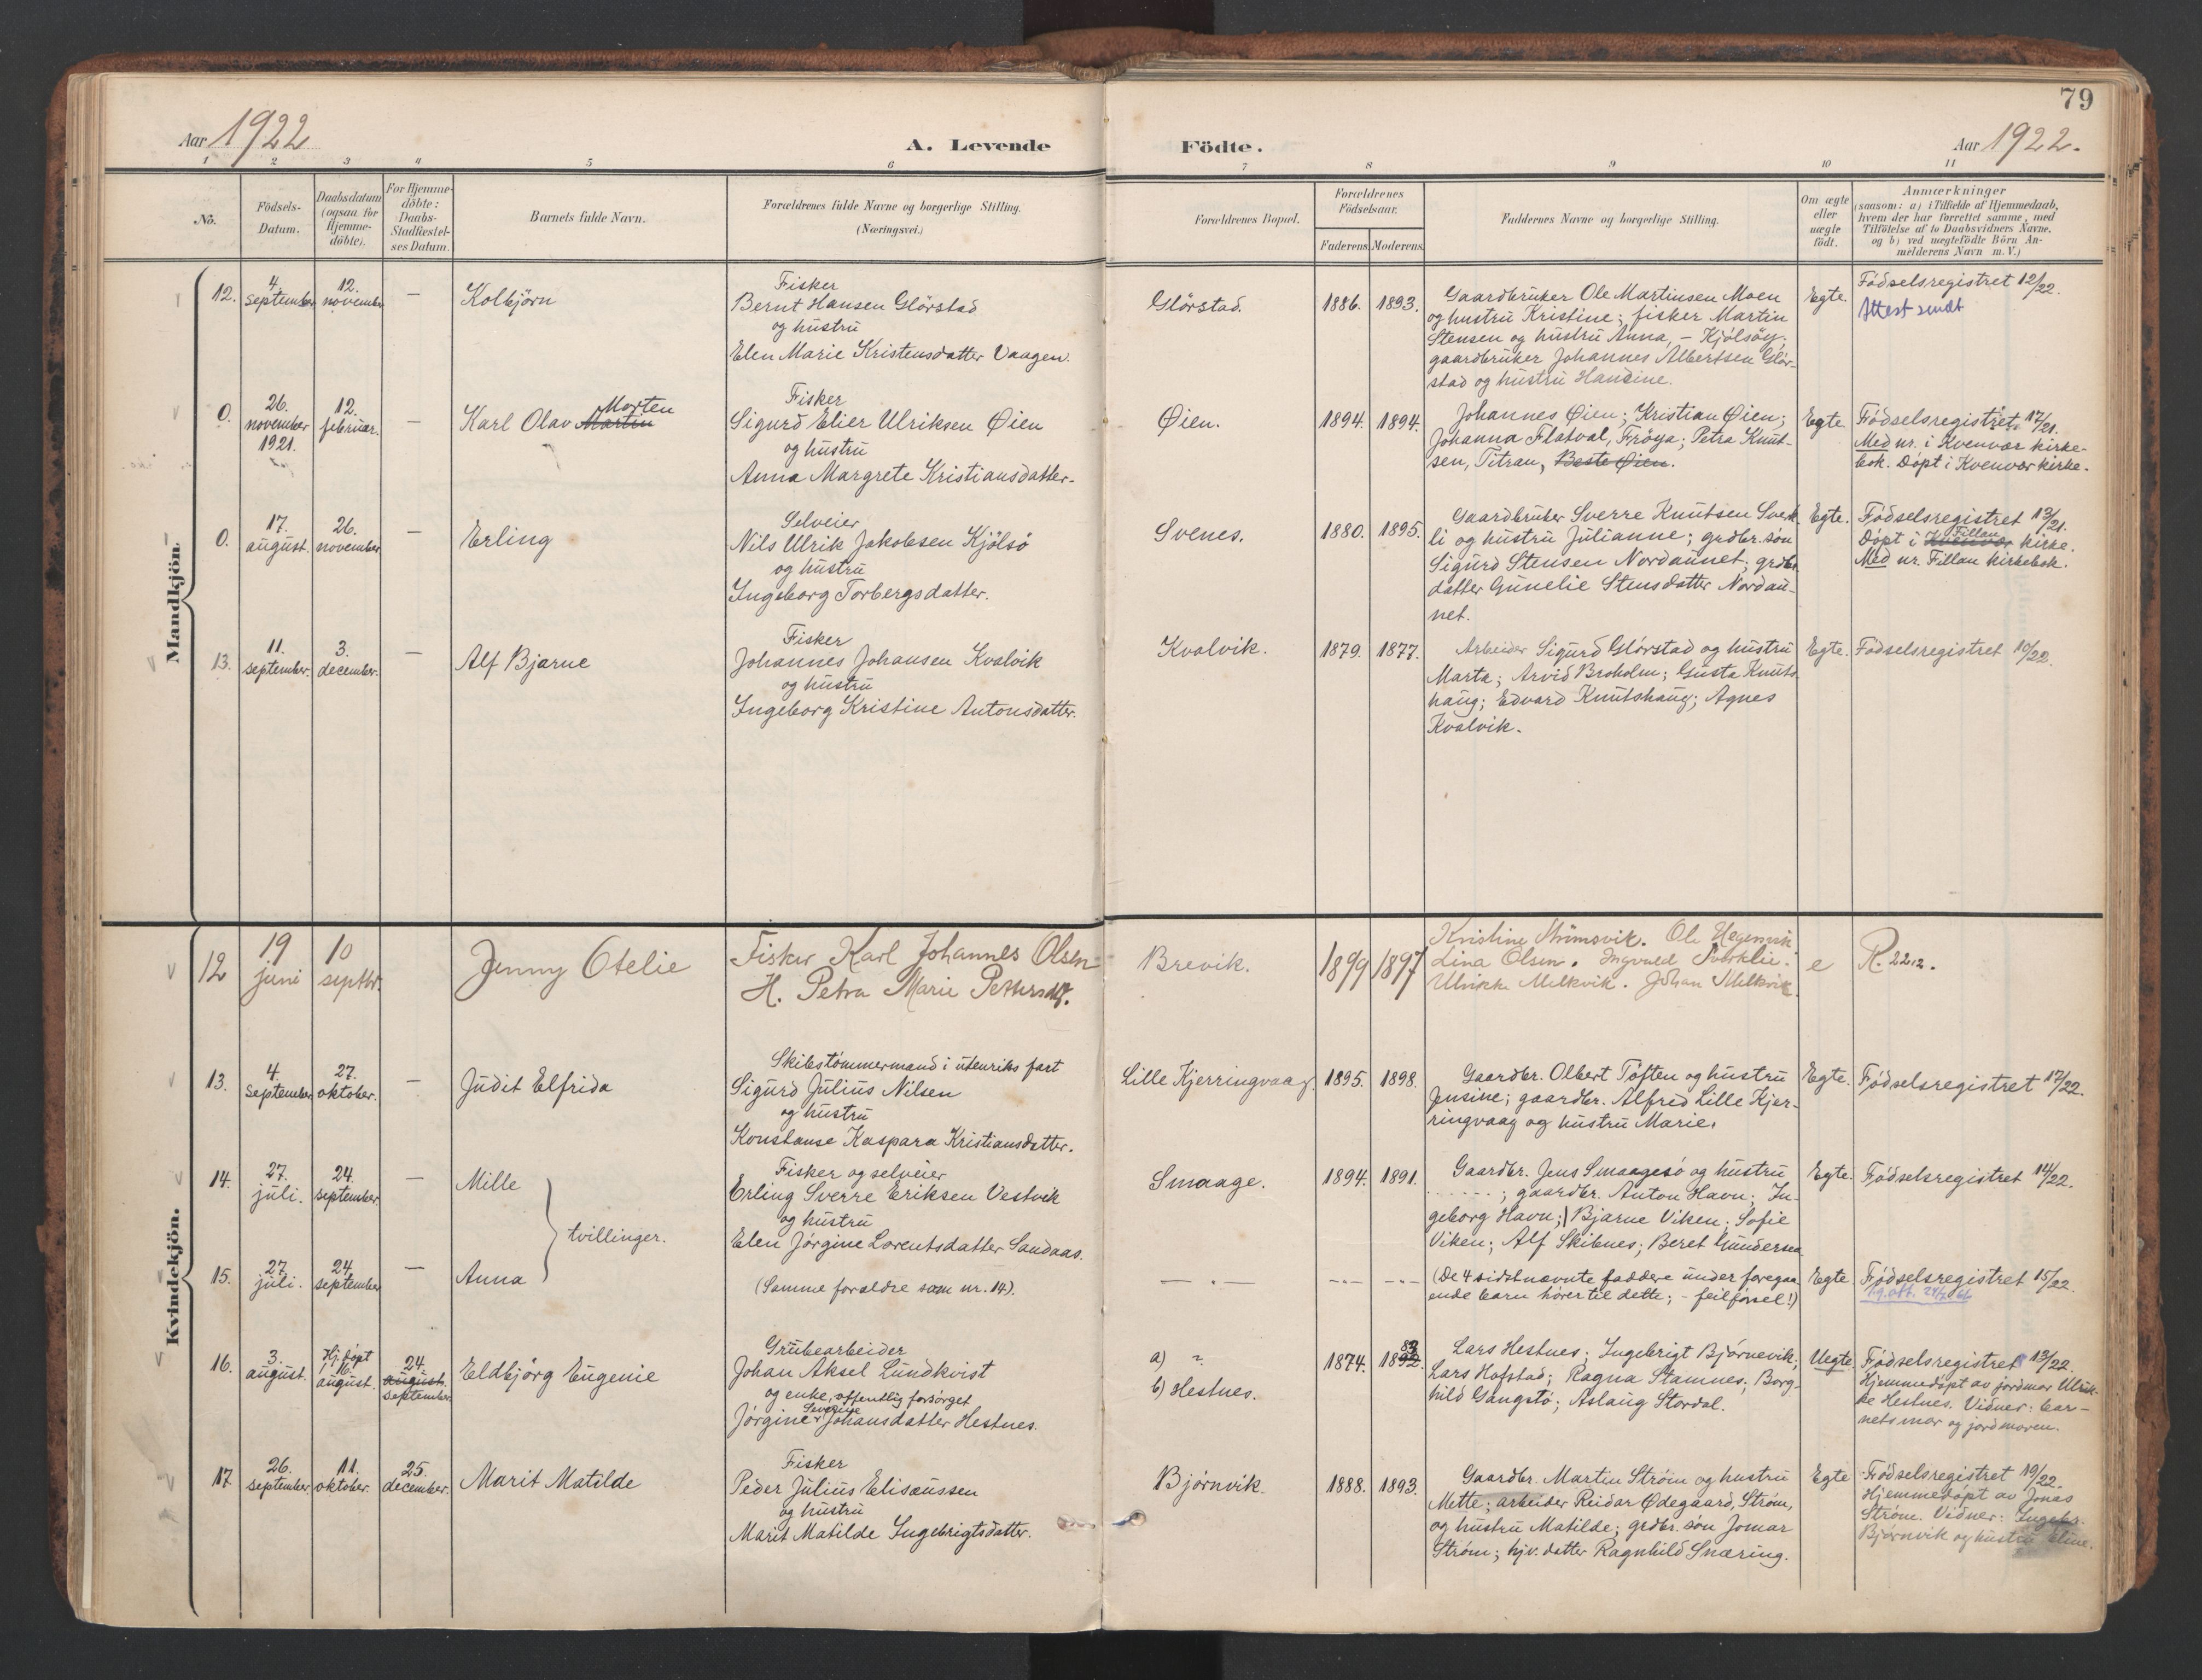 79
Aar 1922
A. Levende
Födte.
Aar 1922.
1 2 3 4 5 6 7 8 9 10 11
No.
Födsels-
Datum.
Daabsdatum
(ogsaa for
Hjemme-
döbte).
For Hjemme-
döbte:
Daabs-
Stadfæstel-
ses Datum.
Barnets fulde Navn.
Forældrenes fulde Navne og borgerlige Stilling.
(Næringsvei.)
Forældrenes Bopæl.
Forældrenes
Födselsaar.
Faderens. Moderens.
Faddernes Navne og borgerlige Stilling.
Om ægte
eller
uægte
födt.
Anmærkninger
(saasom: a) i Tilfælde af Hjemmedaab,
hvem der har forrettet samme, med
Tilföielse af to Daabsvidners Navne,
og b) ved uægtefödte Börn An-
melderens Navn m. V.)
Mandkjön.
12.
4.
september
12.
november
—
Kolbjörn
Fisker
Bernt Hansen Glörstad
og hustru
Elen Marie Kristensdatter Vaagen.
Glörstad.
1886. 1893.
Gaardbruker Ole Martinsen Moen
og hustru Kristine; fisker Martin
Stensen og hustru Anna, - Kjölsöy;
gaardbruker Johannes Albertsen Glör-
stad og hustru Hansine.
Egte.
Födselsregistret 12/22.
Attest sendt
0.
26.
november
1921.
12.
februar.
—
Morten
Karl Olav Martin
Fisker
Sigurd Elier Ulriksen Øien
og hustru
Anna Margrete Kristiansdatter.
Øien.
1894. 1894.
Johannes Øien; Kristian Øien;
Johanna Flatval, Fröya; Petra Knut-
sen, Titran, Beste Øien.
Egte
Födselsregistret 17/21.
Med nr. i Kvenvær kirke-
bok. Döpt i Kvenvær kirke.
0.
17.
august.
26.
november
—
Erling
Selveier
Nils Ulrik Jakobsen Kjölsö
og hustru
Ingeborg Torbergsdatter.
Svenes.
1880. 1895.
Gaardbruker Sverre Knutsen Svek-
li og hustru Julianne; grdbr. sön
Sigurd Stensen Nordaunet; grdbr.
datter Gunelie Stensdatter Nordau-
net.
Egte.
Födselsregistret 13/21.
Fillan
Döpt i Kvenvær kirke.
Med nr. Fillan kirkebok.
13.
11.
september.
3.
december.
—
Alf Bjarne
Fisker
Johannes Johansen Kvalvik
og hustru
Ingeborg Kristine Antonsdatter.
Kvalvik.
1879. 1877.
Arbeider Sigurd Glörstad og hustru
Marta; Arvid Broholm; Gusta Knuts-
haug; Edvard Knutshaug; Agnes
Kvalvik.
Egte.
Födselsregistret 10/22.
Kvindekjön.
12
19
juni
10
septbr.
Jenny Otelie
Fisker Karl Johannes Olsen
H. Petra Marie Pettersdtr.
Brevik.
1899 1897
Kristine Strömsvik. Ole Hegervik.
Lina Olsen. Ingvald Sverkli.
Ulrikke Melkvik. Johan Melkvik.
e
R. 22 12.
13.
4.
September
27.
oktober.
—
Judit Elfrida
Skibstömmermand i utenriks fart
Sigurd Julius Nilsen
og hustru
Konstanse Kaspara Kristiansdatter.
Lille Kjerringvaag.
1895. 1898.
Gaardbr. Olbert Töften og hustru
Jensine; gaardbr. Alfred Lille Kjer-
ringvaag og hustru Marie.
Egte.
Födselsregistret 17/22.
14.
27.
juli.
24.
september
—
Mille
tvillinger.
Fisker og selveier
Erling Sverre Eriksen Vestvik
og hustru
Elen Jörgine Lorentsdatter Sandaas.
Smaage.
1894. 1891.
Gaardbr. Jens Smaagesö og hustru
......; gaardbr. Anton Havn; In-
geborg Havn; | Bjarne Viken; Sofie
Viken; Alf Skibnes; Beret Gundersen
Egte.
Födselsregistret 14/22.
15.
27.
juli.
24.
september
—
Anna
(Samme forældre som nr. 14).
— . —
(De 4 sidstnævnte faddere under foregaa-
ende barn hörer til dette; - feilförsel!)
Egte
Födselsregistret 15/22.
16.
3.
august.
Hj. döpt
16.
august.
24.
august.
september
Eldbjörg Eugenie
Grubearbeider
Johan Aksel Lundkvist
og enke, offentlig forsörget
Severine
Jörgine Johansdatter Hestnes.
a) ?
b) Hestnes.
1874.
83
1892.
Lars Hestnes; Ingebrigt Björnevik;
Lars Hofstad; Ragna Stamnes; Borg-
hild Gangstö; Aslaug Stordal.
Uegte.
Födselsregistret 13/22.
Hjemmedöpt av jordmor Ulrik-
ke Hestnes. Vidner: bar-
nets mor og jordmoren.
17.
26.
september.
11.
oktober.
25.
december.
Marit Matilde
Fisker
Peder Julius Elisæussen
og hustru
Marit Matilde Ingebrigtsdatter.
Björnvik.
1888. 1893.
Gaardbr. Martin Ström og hustru
Mette; arbeider Reidar Ødegaard, Ström,
og hustru Matilde; grdbr. sön Jomar
Ström; hjv. datter Ragnhild Snæring.
Egte
Födselsregistret 19/22.
Hjemmedöpt av Jonas
Ström. Vidner: Ingebr.
Björnvik og hustru Eline.